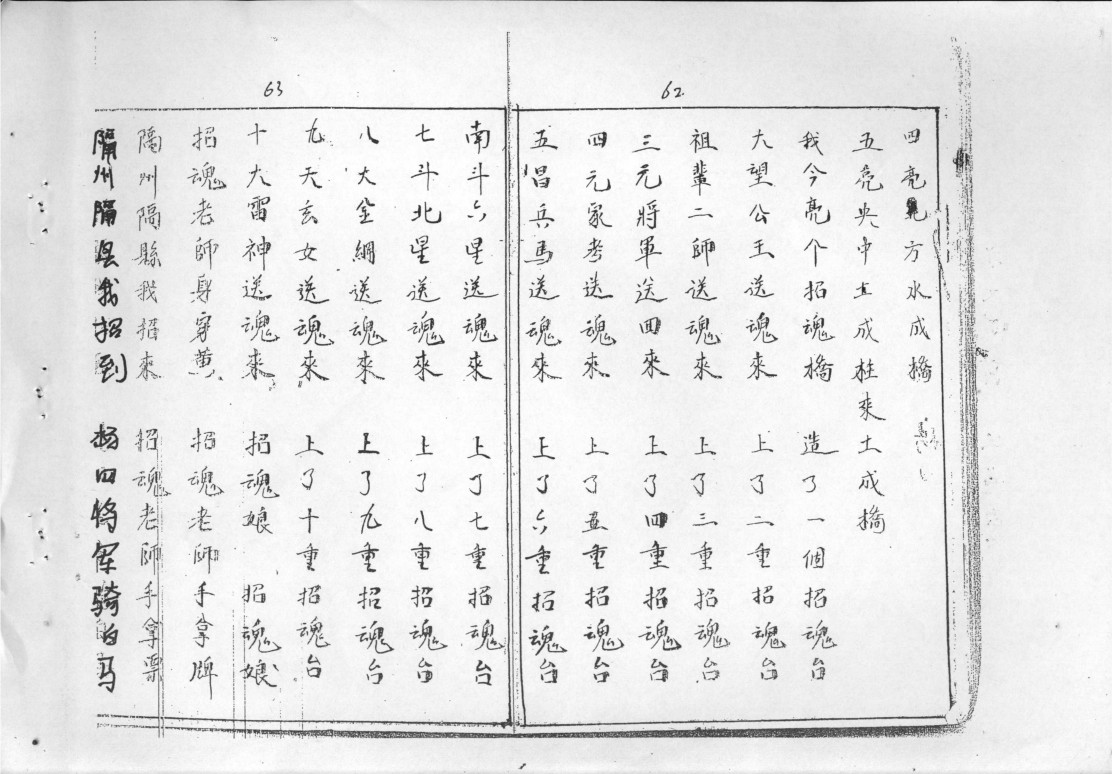 62
四亮北方水成橋
五亮央中土成柱來土成橋
我今亮个招魂橋 造了一個招魂台
大望公王送魂來 上了二重招魂台
祖輩二師送魂來 上了三重招魂台
三元將軍送四來 上了四重招魂台
四元家考送魂來 上了五重招魂台
五昌兵馬送魂來 上了六重招魂台
63
南斗六星送魂來 上了七重招魂台
七斗北星送魂來 上了八重招魂台
八大金綱送魂來 上了九重招魂台
九天玄女送魂來 上了十重招魂台
十大雷神送魂來 招魂娘 招魂娘
招魂老師身穿黄 招魂老師手拿牌
隔州隔縣我招來 招魂老師手拿票
隔州隔县我招到 杨四将军骑白马